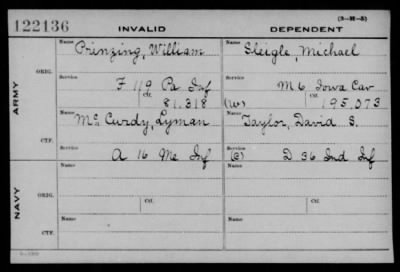 122136 INVALID DEPENDENT (3-M-5)
ARMY
ORIG.
Name Prinzing, William
Name Sleigle, Michael
Service F 119 Pa Inf
Service M 6 Iowa Cav
Ctf. 81.318
(W) Ctf. 195,073
CTF.
Name McCurdy, Lyman
Name Taylor, David S.
Service A 16 Me Inf
Service (C) D 36 Ind Inf
NAVY
ORIG.
Name
Name
Service Ctf.
Service Ctf.
CTF.
Name
Name